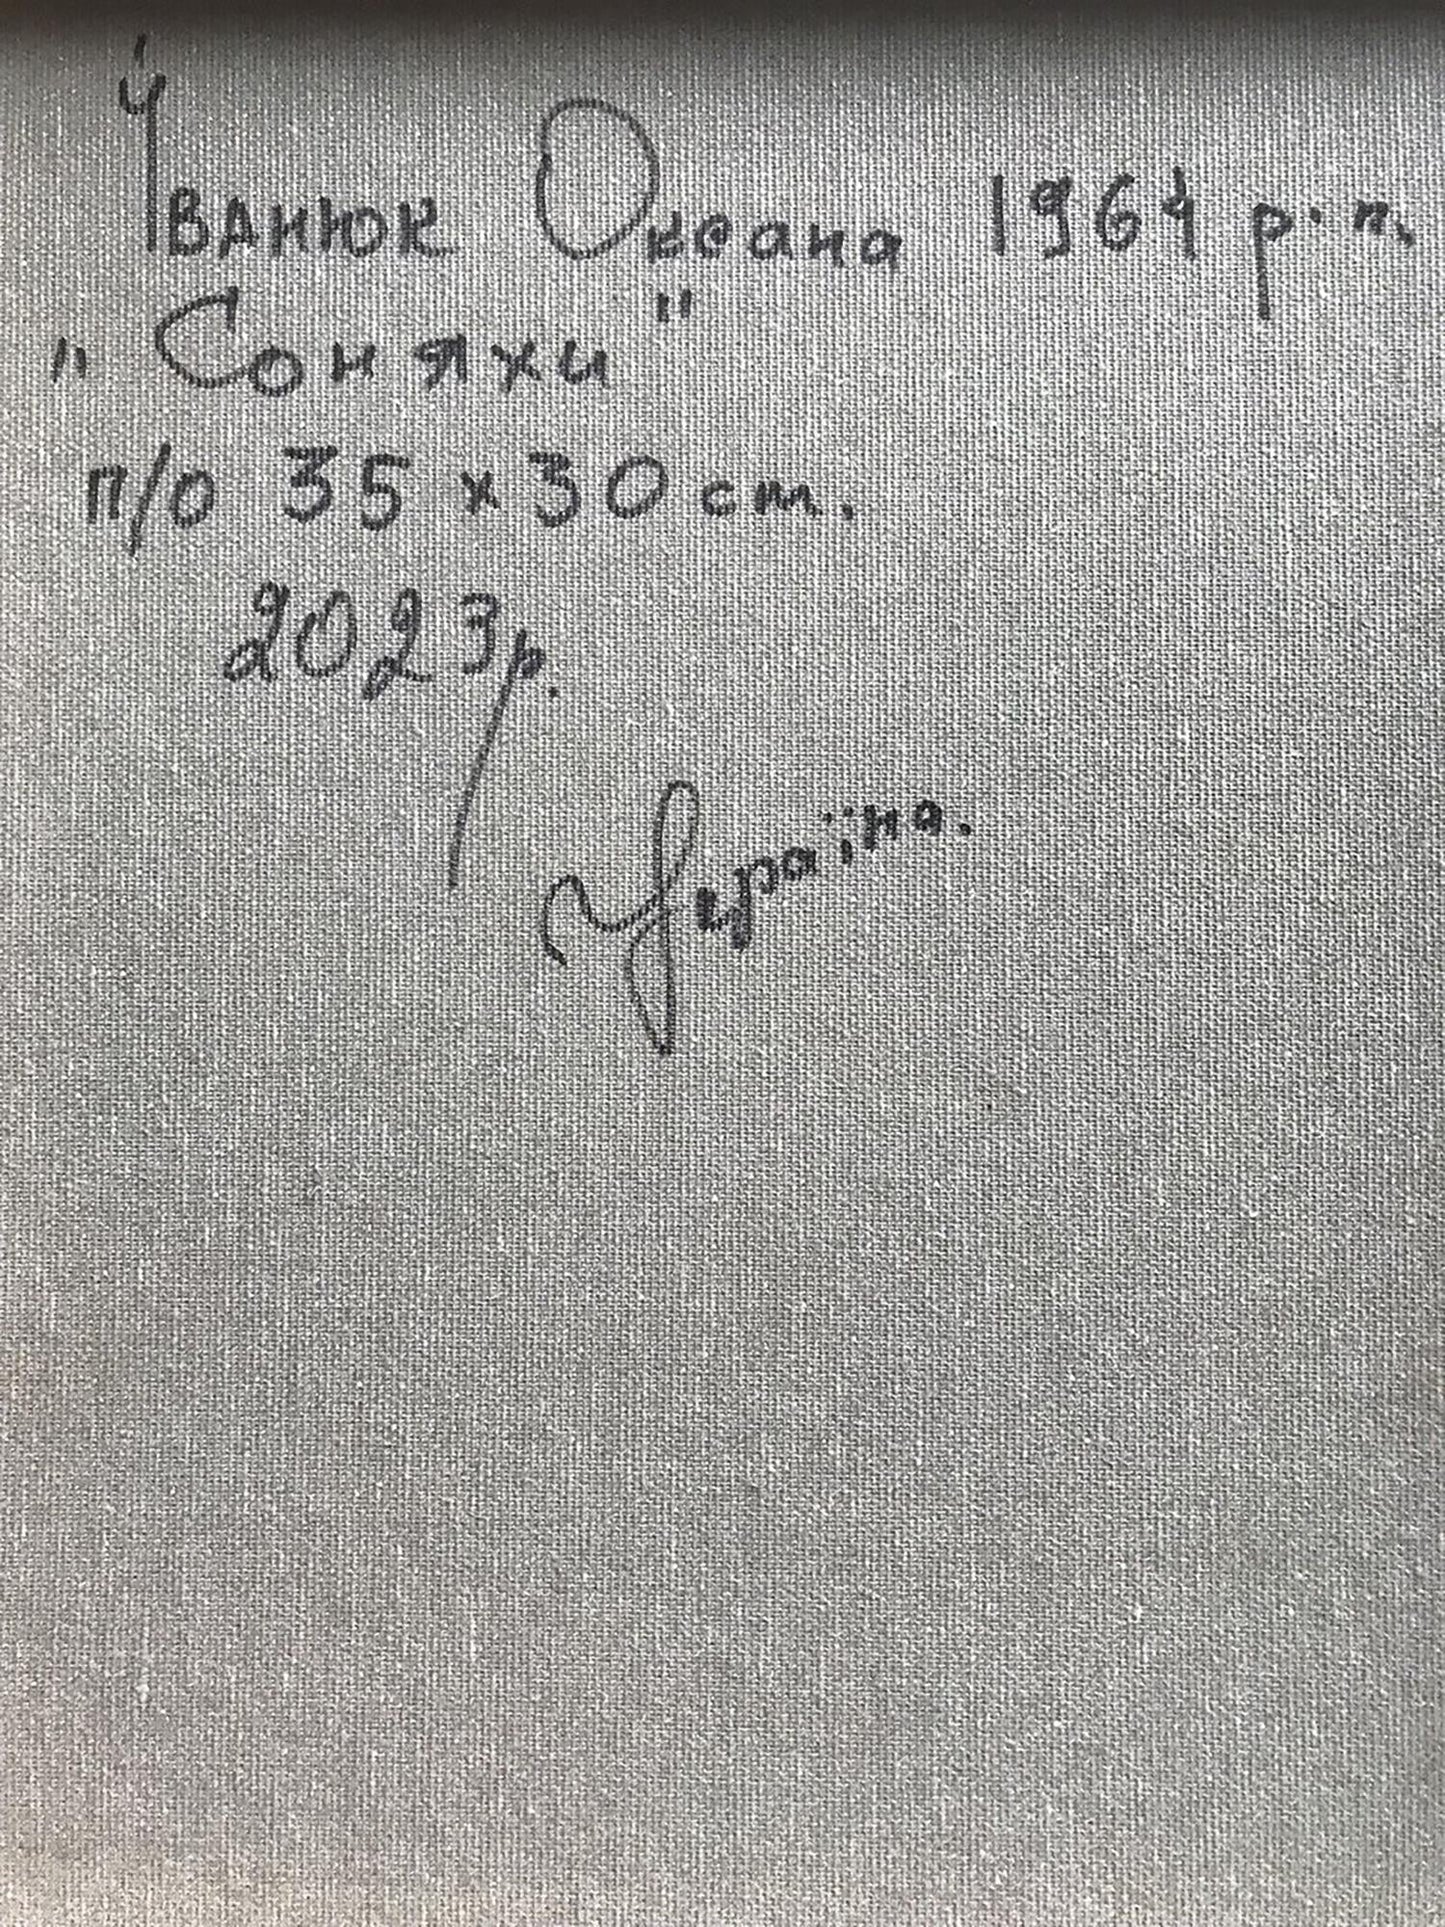 Іванюк Оксана 1961 р.н.
"Соняхи"
п/о 35 x 30 cm.
2023р.
Україна.